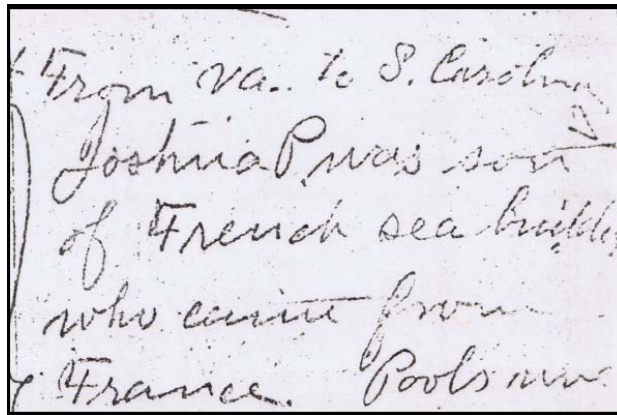 From Va. to S. Carolina
Joshua P. was son
of French sea builder
who came from
France. Pools